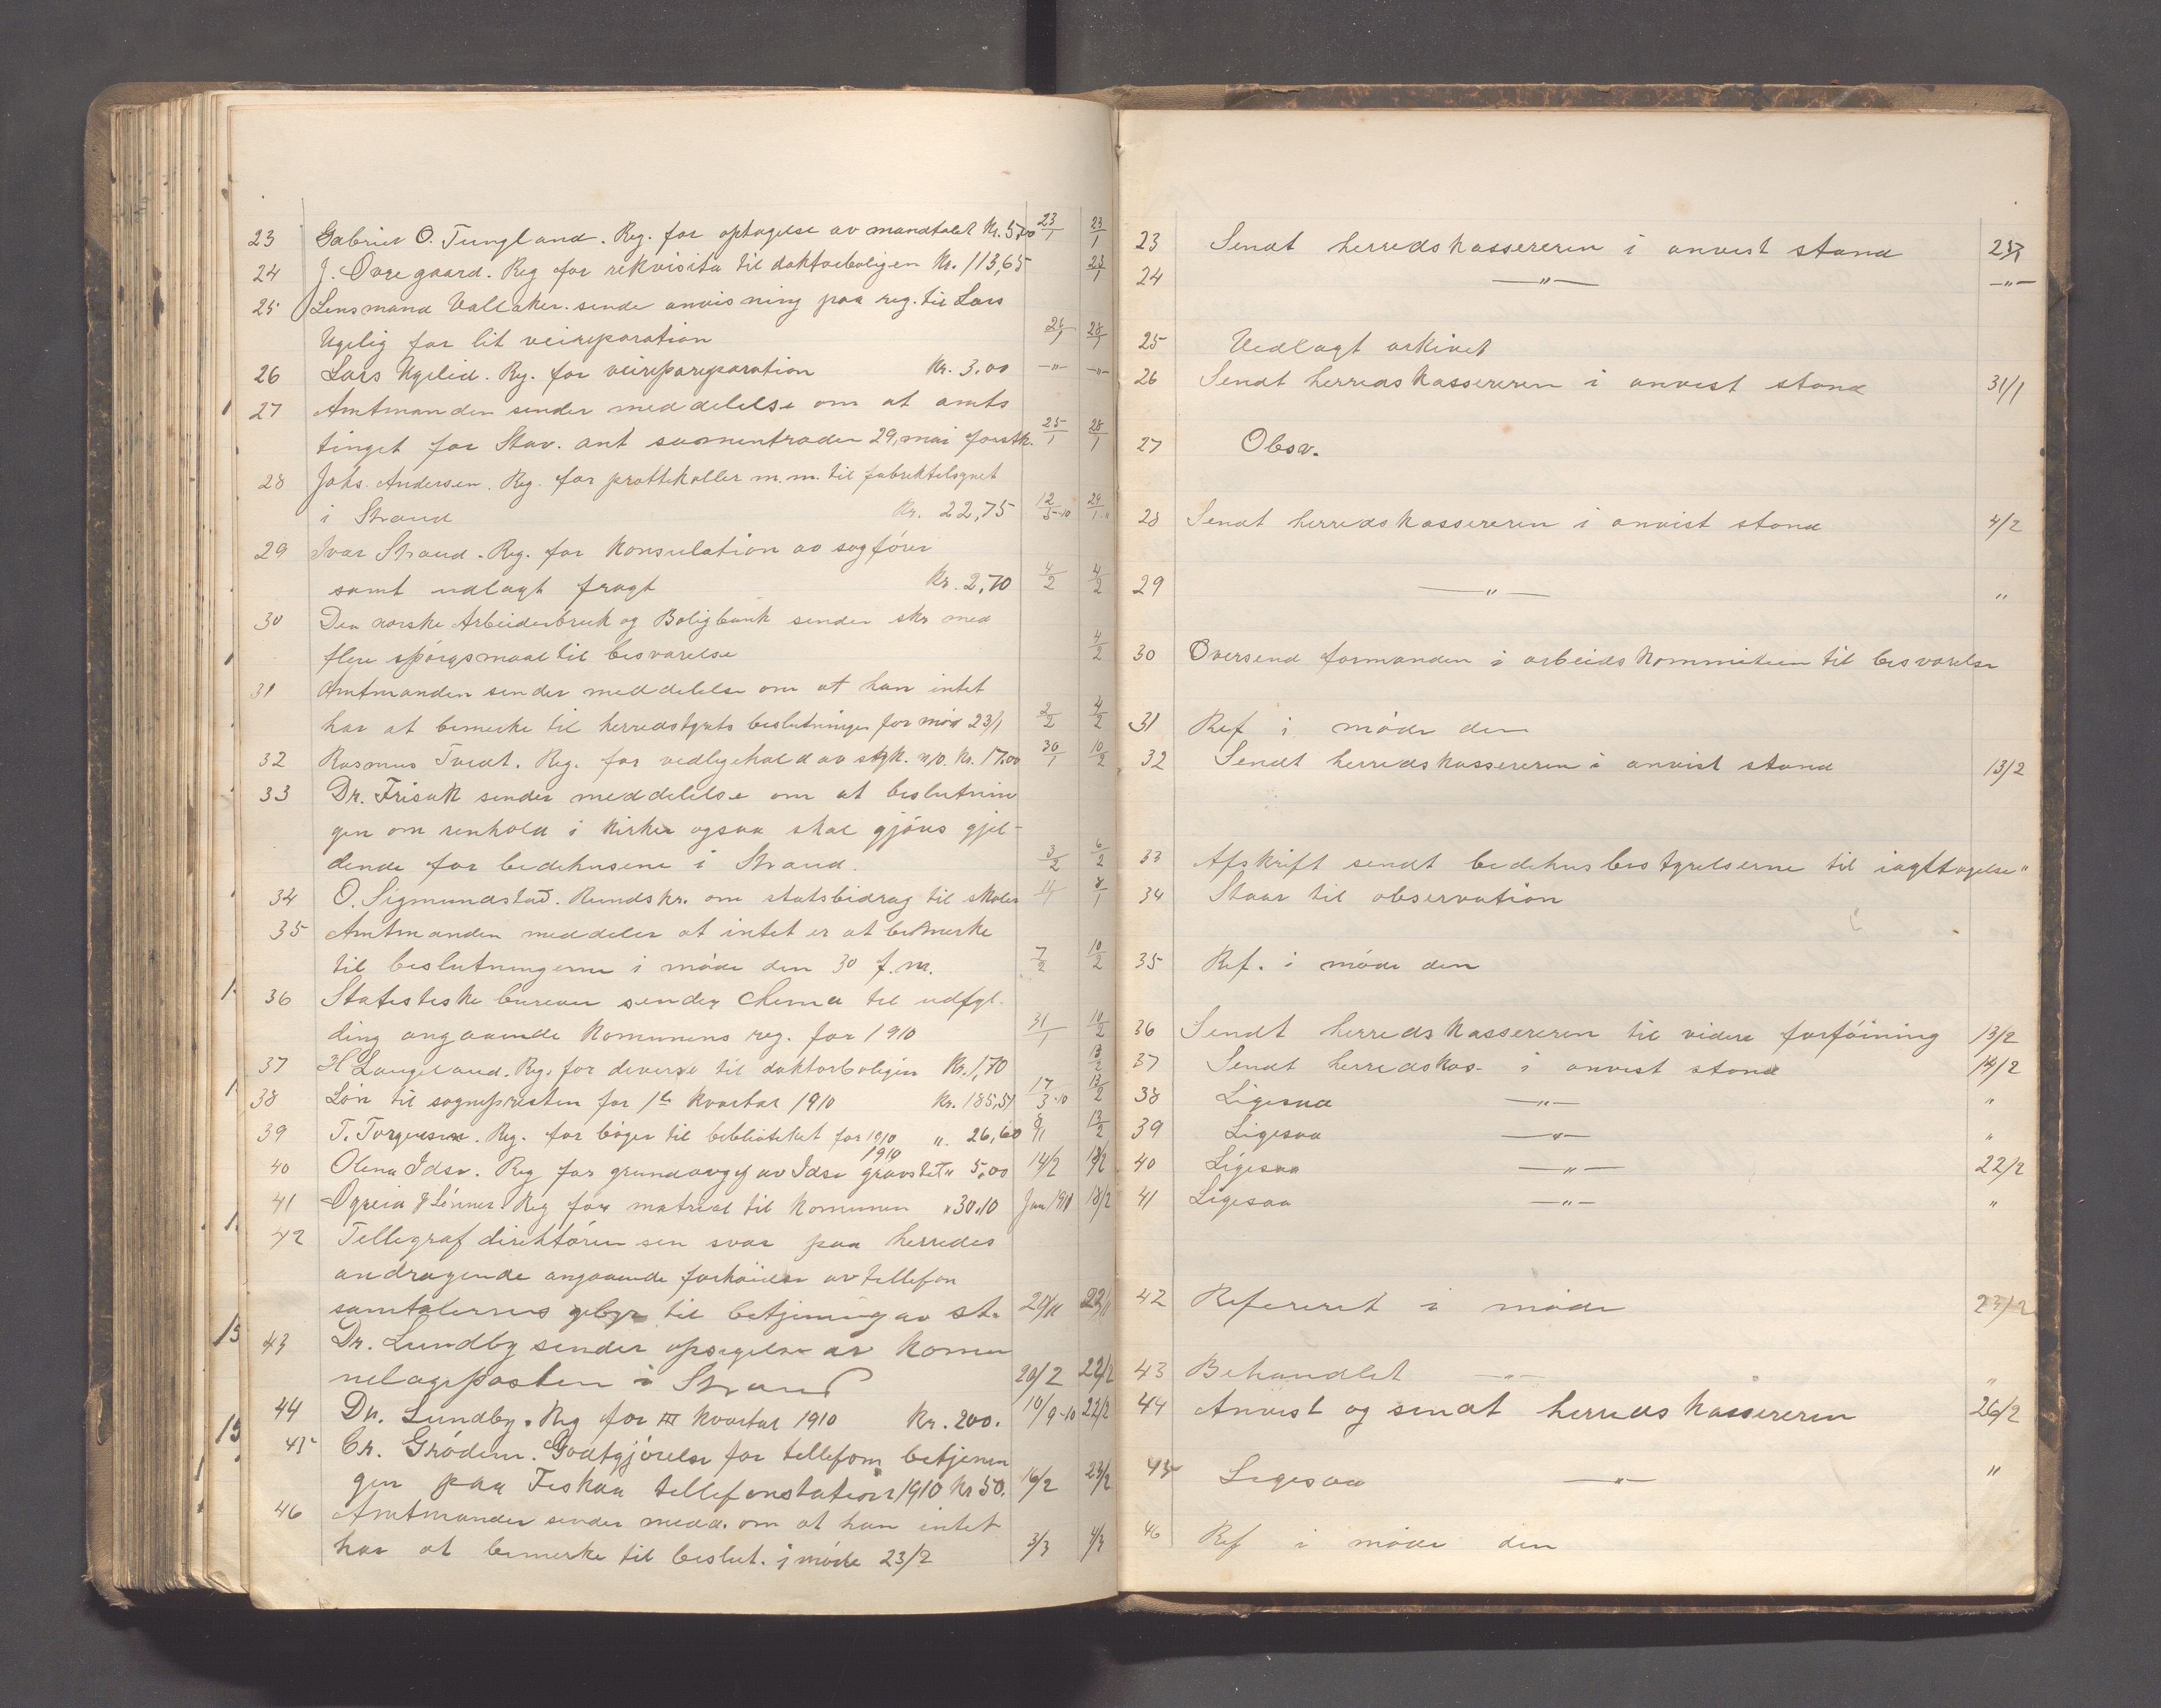 23 Gabriel O. Tungland. Reg. for optagelse av mandtalet Kr. 5,00 23/1 23/1
24 J. Ovregaard. Reg for rekvisita til doktorboligen Kr. 113,65 23/1
25 Lensmand Vallaker. sende anvisning paa reg. til Lars
Ugelig for lit veireparation 26/1 28/1
26 Lars Ugelid. Reg. for veirepareparation Kr. 3.00 -"- -"-
27 Amtmanden sender meddelelse om at amts
tinget for Stav. amt sammentræder 29, mai forstk. 25/1 28/1
28 Johs. Andersen. Reg. for prottekoller m.m. til fabriktilsynet
i Strand Kr. 22,75 12/5-10 29/1
29 Ivar Strand. Reg. for Konsulation av sagfører
samt udlagt fragt Kr. 2,70 4/2 4/2
30 Den norske Arbeiderbruk og Boligbank sender skr med
flere spórgsmaal til besvarelse 4/2
31 Amtmanden sender meddelelse om at han intet
har at bemerke til herredstyrets beslutninger for mØde 23/1 2/2 4/2
32 Rasmus Tvedt. Reg. for vedligehold av styk. Kr. 17.00 30/1 10/2
33 Dr. Frisak sender meddelelse om at beslutnin
gen om renhold i Kirker ogsaa skal gjóres gjel-
dende for bedehusene i Strand. 3/2 6/2
34 O. Sigmundstad. Rundskr. om statsbidrag til skoler 8/1
35 Amtmanden meddeler at intet er at bemerke
til beslutningerne i móde den 30 f.m. 7/2 10/2
36 Statistiske bureau sender chema til udfyl-
ding angaaende Komunens reg. for 1910 31/1 10/2
37 H Langeland. Reg. for diverse til doktorboligen Kr. 1,70 13/2
38 Lón til sognepresten for 1ste Kvartal 1910 Kr. 185,51 17/3-10 13/2
39 T. Torgersen. Reg. for bóger til biblioteket for 1910 ". 26,60 13/2
40 Olena Idse. Reg for grundavgif av Idse gravsted 1910 " 5,00 14/2 18/2
41 Ogreid & Sónner. Reg for matrial til Komunen " 30.10 Jan 1911 18/2
42 Tellegraf direktóren sen svar paa herredes
andragende angaaende forhóielse av tellefon
samtalernes gebyr til betjening av st. 22/11
43 Dr. Lundby sender opsigelse av Komu
nelægeposten i Strand 20/2 22/2
44 Dr. Lundby. Reg for III Kvartal 1910 Kr. 200. 10/9-10 22/2
45 Cr. Gródem. Godtgjórelse for tellefon betjenin
gen paa Fiskaa tellefonstation 1910 Kr 50. 16/2 23/2
46 Amtmanden sender medd. om at han intet
har at bemerke til beslut. i móde 23/2 3/3 4/3
23 Sendt herredskassereren i anvist stand 23/1
24 -"- -"-
25 Vedlagt arkivet
26 Sendt herredskassereren i anvist stand 31/1
27 Obsv.
28 Sendt herredskassereren i anvist stand 4/2
29 -"- "
30 Oversend formanden i arbeidskommiteen til besvarelse
31 Ref i móde den
32 Sendt herredskassereren i anvist stand 13/2
33 Afskrift sendt bedehusbestyrelserne til iagttagelse"
34 Staar til observation
35 Ref. i móde den
36 Sendt herredskassereren til videre forfóining 13/2
37 Sendt herredskas. i anvist stand 14/2
38 Ligesaa -"- "
39 Ligesaa -"- "
40 Ligesaa -"- 22/2
41 Ligesaa -"- "
42 Refereret i móde 23/2
43 Behandlet -"- "
44 Anvist og sendt herredskassereren 26/2
45 Ligesaa -"- "
46 Ref i móde den